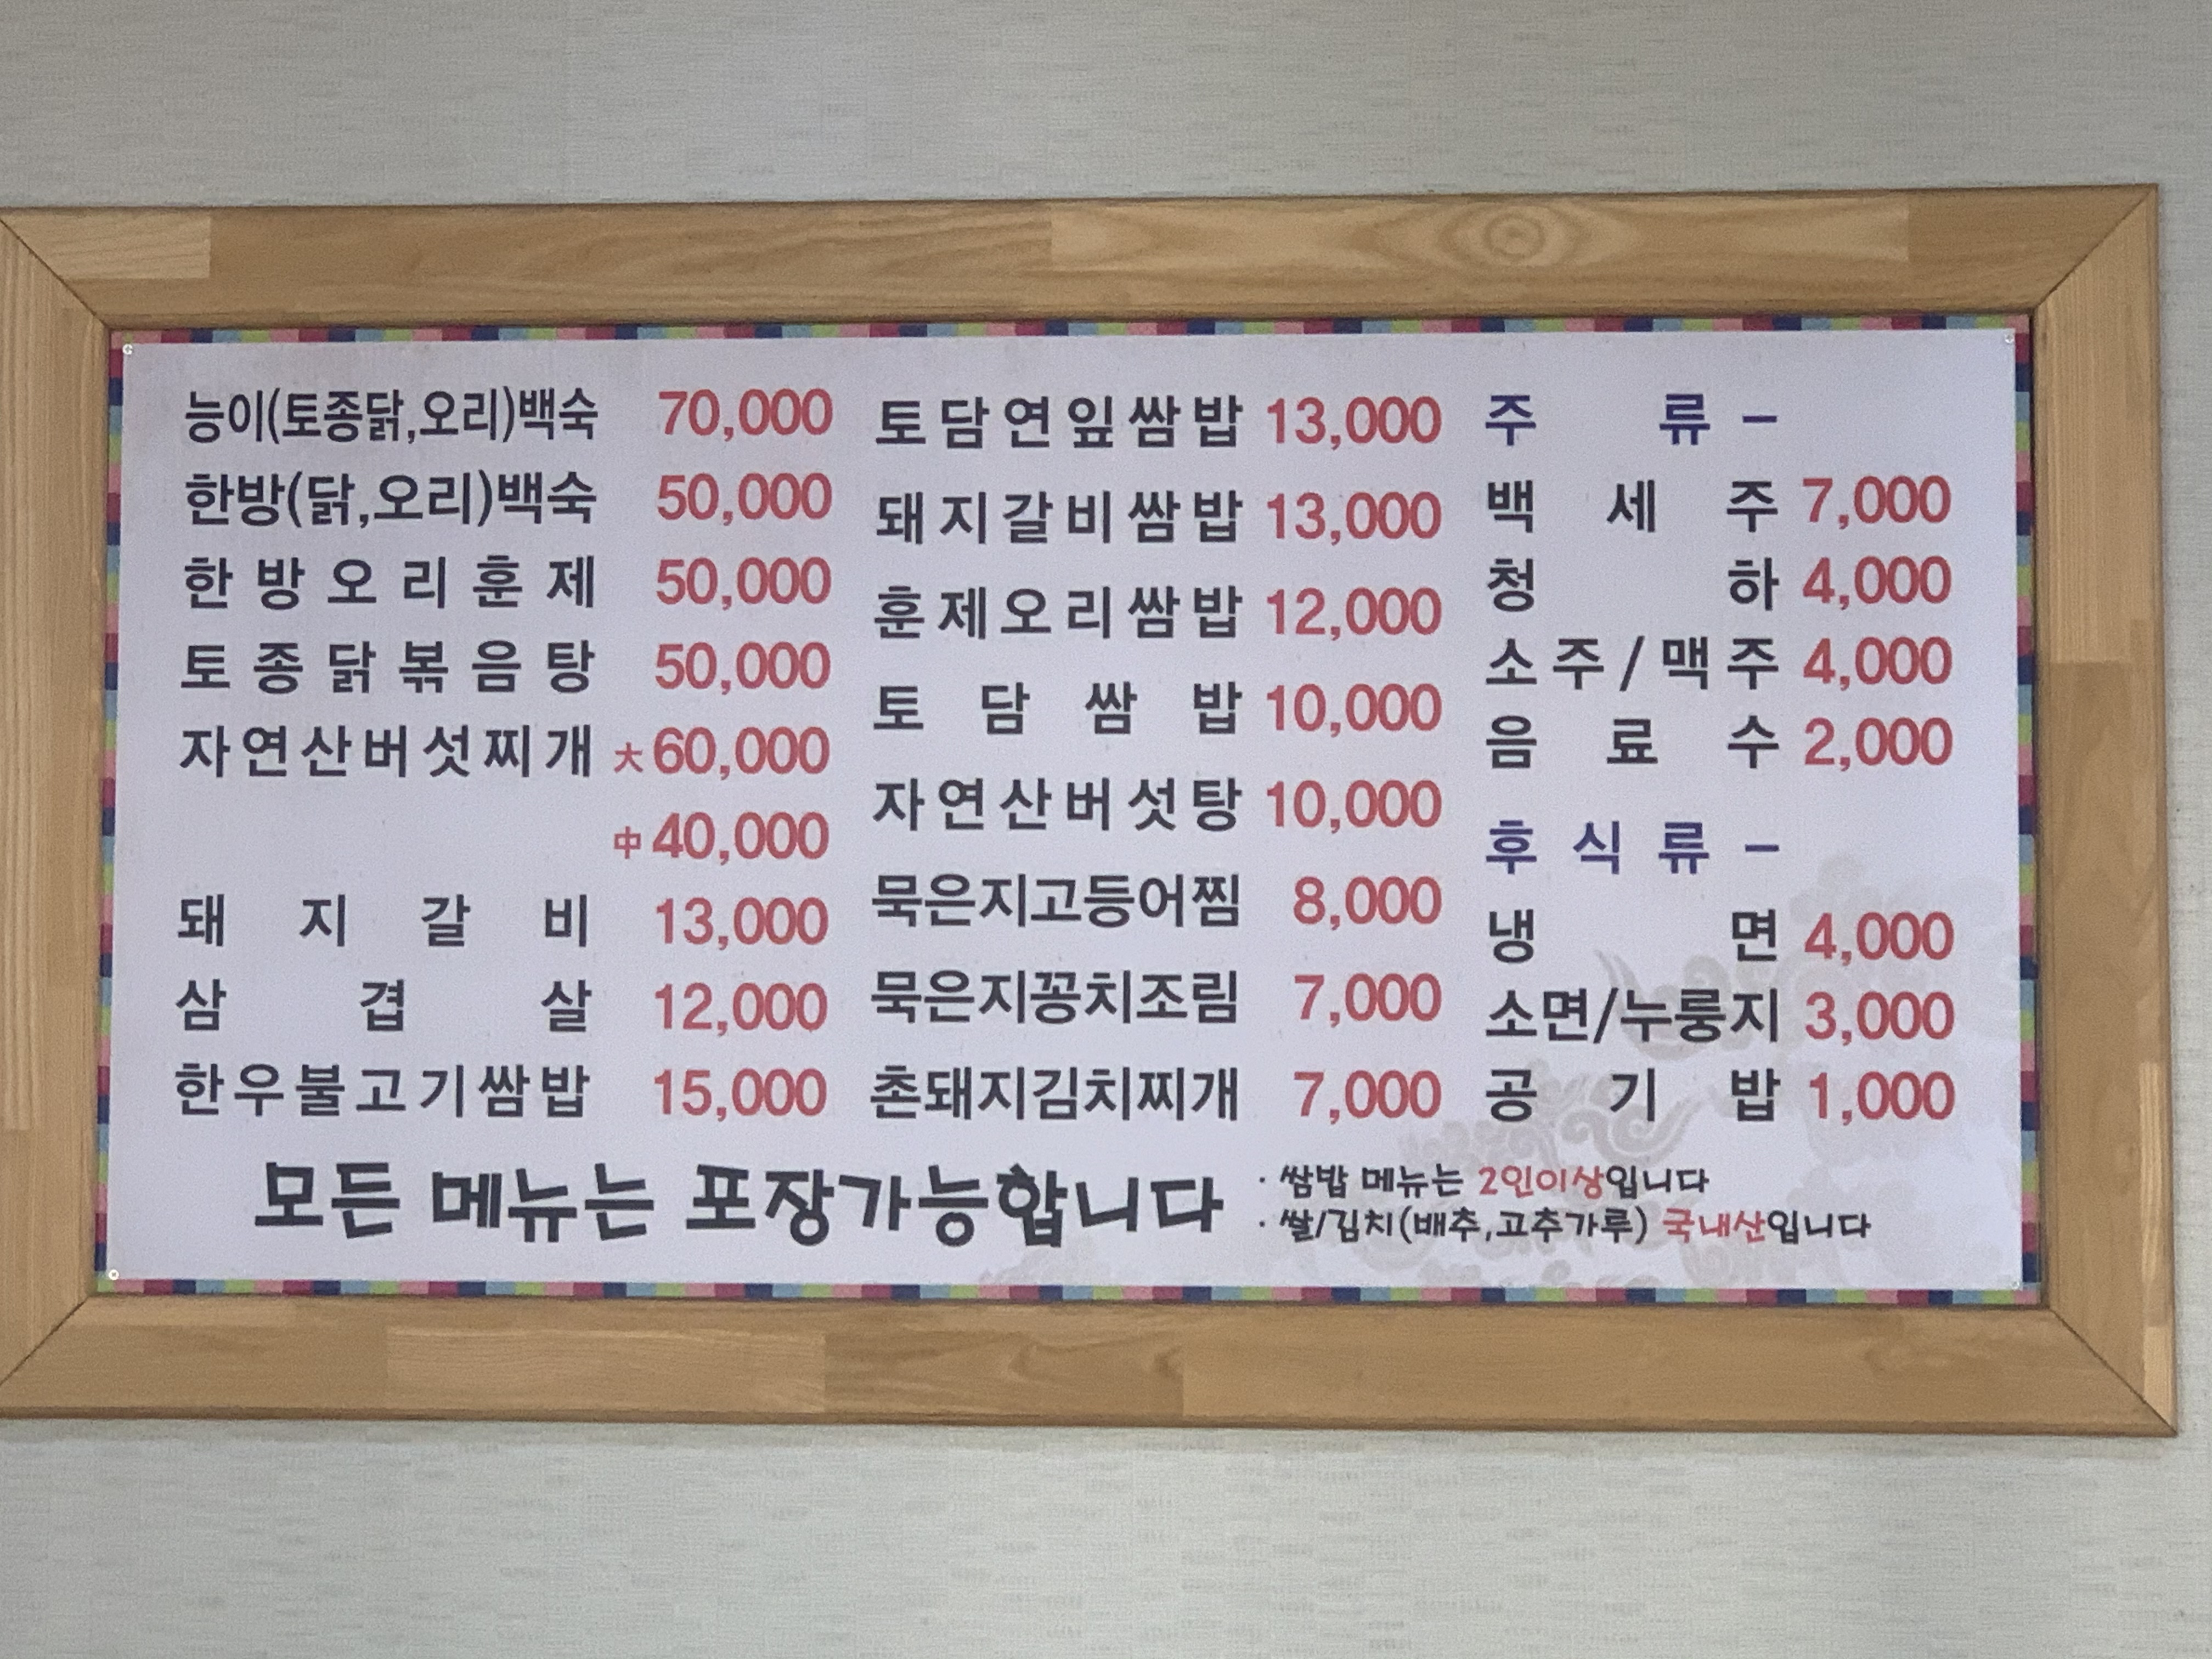 능이(토종닭,오리)백숙 70,000
한방(닭,오리)백숙 50,000
한방오리훈제 50,000
토종닭볶음탕 50,000
자연산버섯찌개 大 60,000
中 40,000
돼지갈비 13,000
삼겹살 12,000
한우불고기쌈밥 15,000
토담연잎쌈밥 13,000
돼지갈비쌈밥 13,000
훈제오리쌈밥 12,000
토담쌈밥 10,000
자연산버섯탕 10,000
묵은지고등어찜 8,000
묵은지꽁치조림 7,000
촌돼지김치찌개 7,000
주류 -
백세주 7,000
청하 4,000
소주/맥주 4,000
음료수 2,000
후식류 -
냉면 4,000
소면/누룽지 3,000
공기밥 1,000
모든 메뉴는 포장가능합니다
· 쌈밥 메뉴는 2인이상입니다
· 쌀/김치(배추,고추가루) 국내산입니다